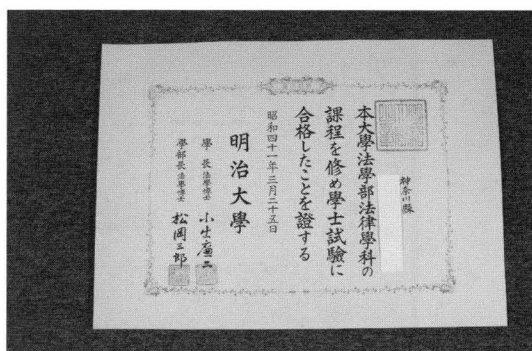 神奈川縣
本大學法學部法律學科の
課程を修め學士試驗に
合格したことを證する
昭和四十一年三月二十五日
明治大學
學長 法學博士 小出廉二
學部長 法學博士 松岡三郎